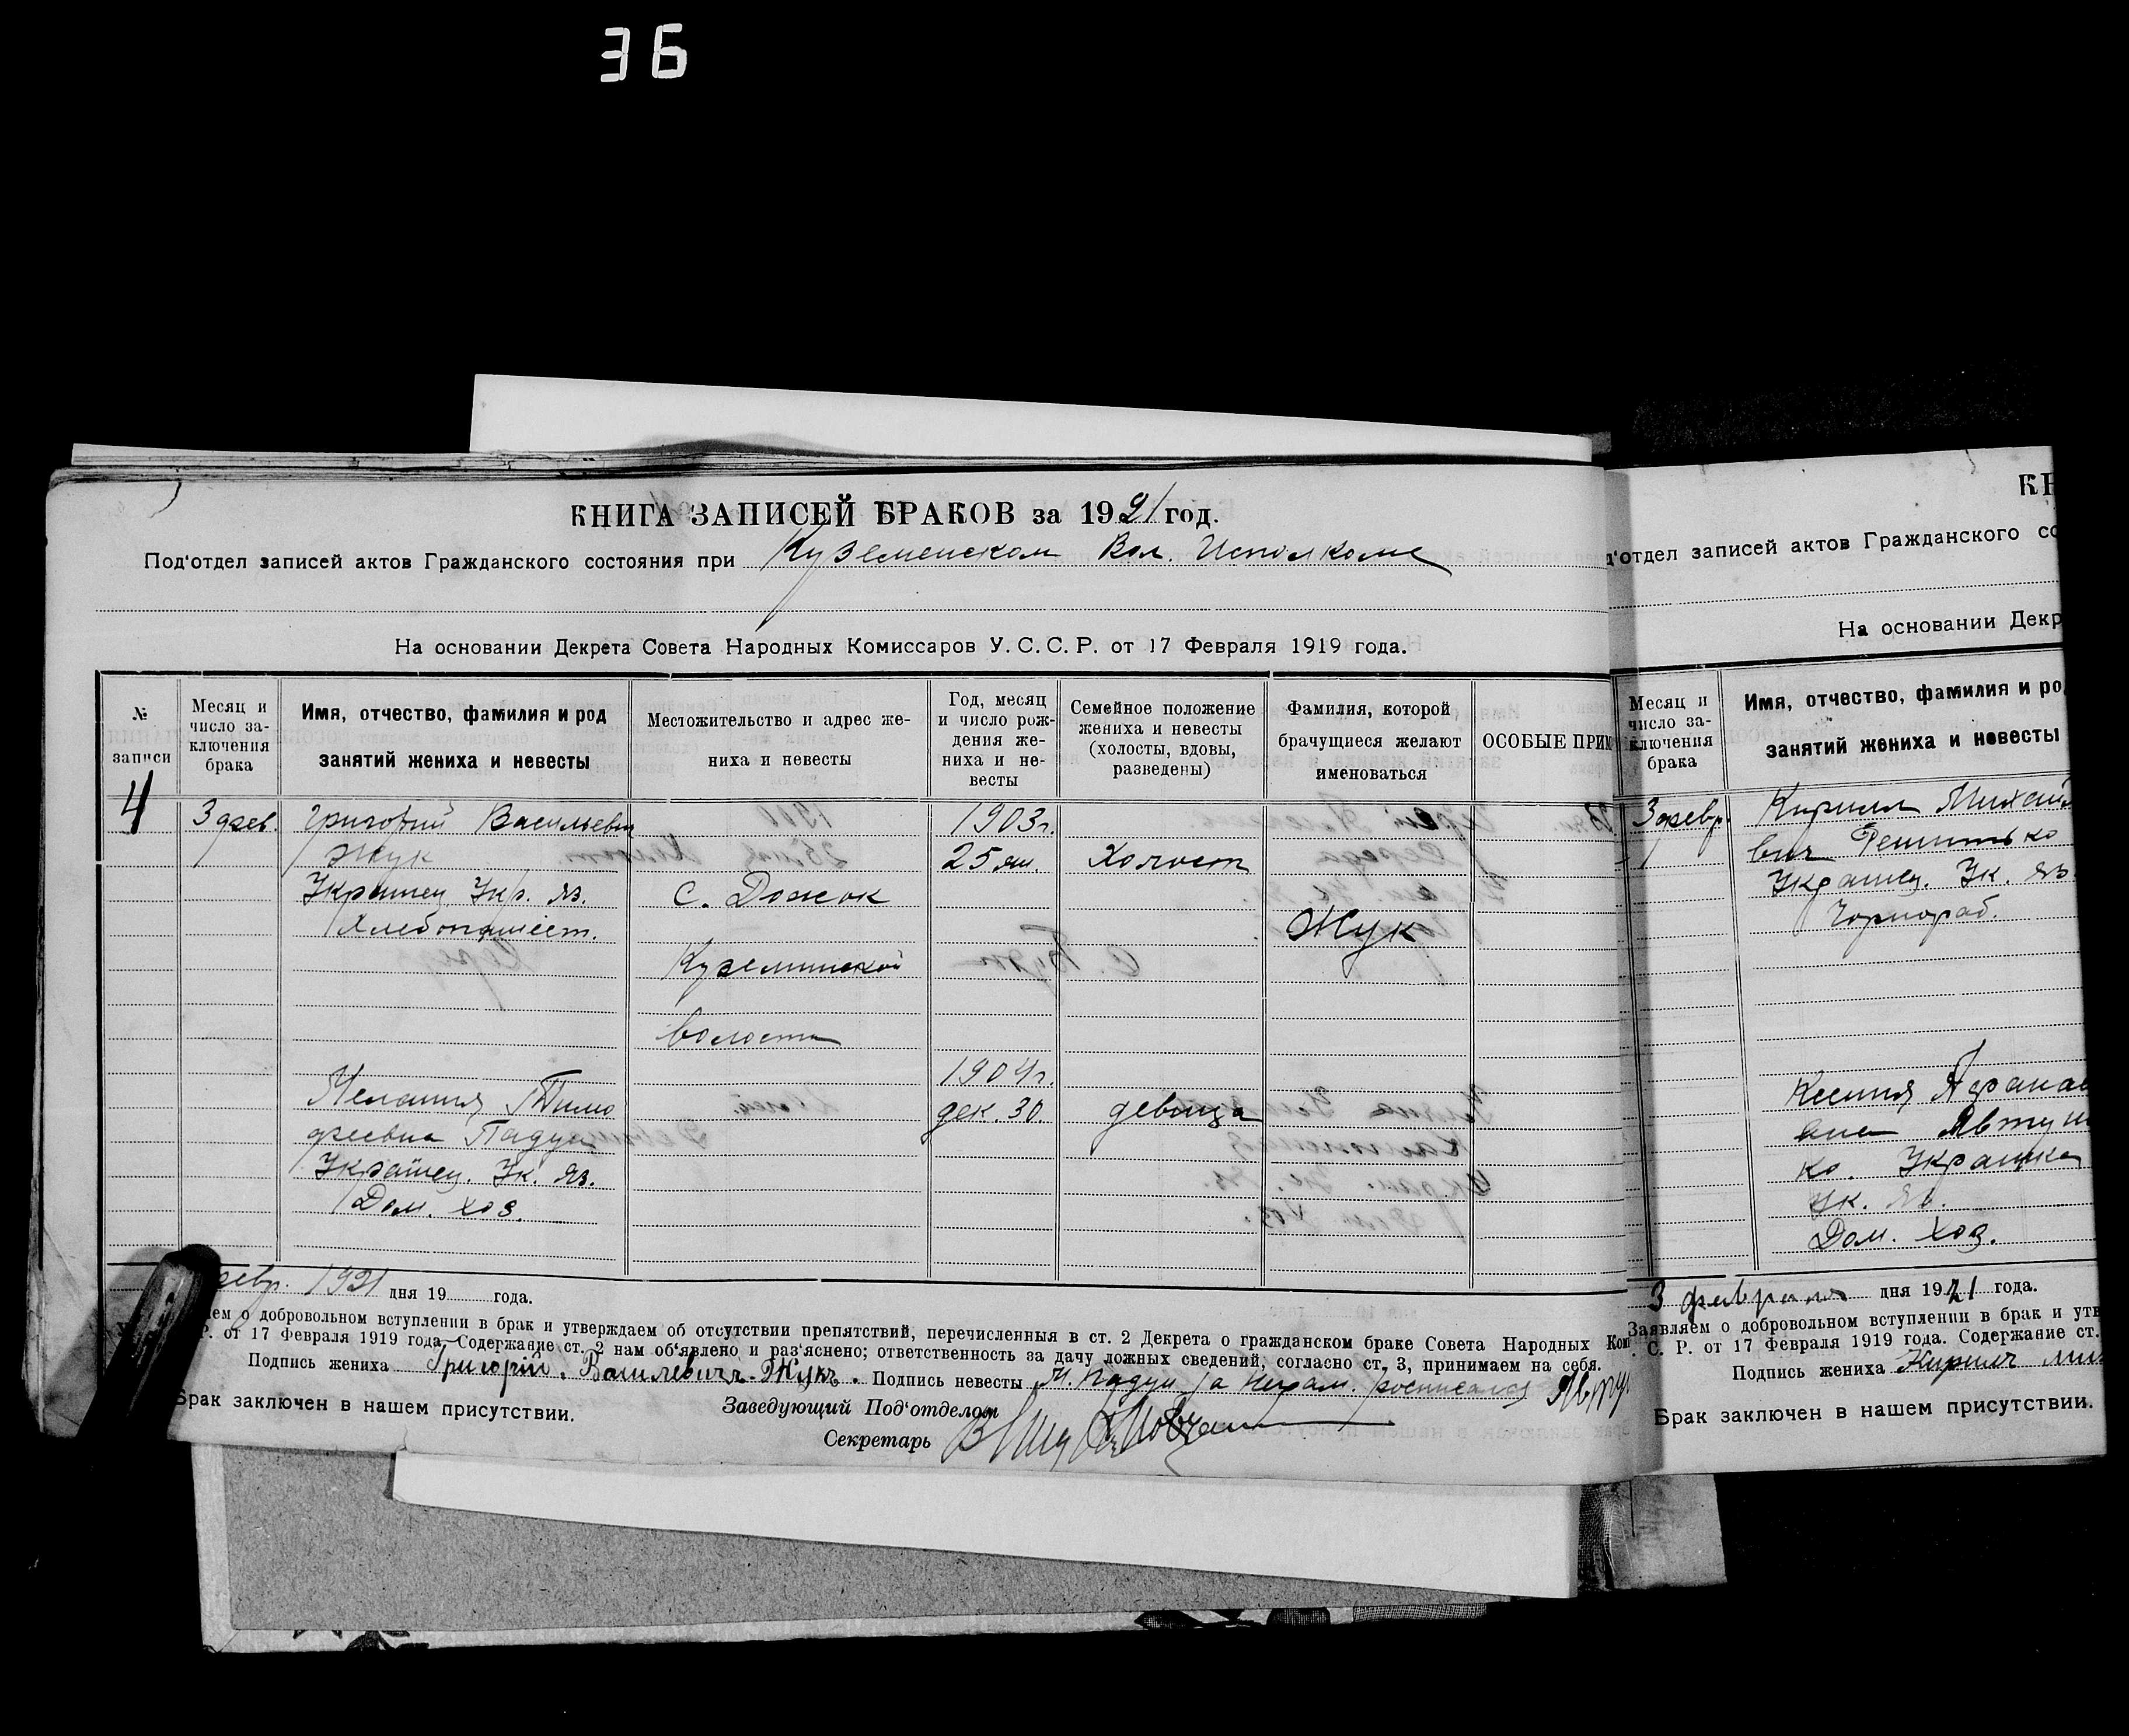 36
КНИГА ЗАПИСЕЙ БРАКОВ за 1921 год.
Под'отдел записей актов Гражданского состояния при Куземенском Вол. Исполкоме
На основании Декрета Совета Народных Комиссаров У. С. С. Р. от 17 Февраля 1919 года.
№ записи
Месяц и число за-
ключения
брака
Имя, отчество, фамилия и род
занятий жениха и невесты
Местожительство и адрес же-
ниха и невесты
Год, месяц
и число рож-
дения же-
ниха и не-
весты
Семейное положение
жениха и невесты
(холосты, вдовы,
разведены)
Фамилия, которой
брачущиеся желают
именоваться
ОСОБЫЕ ПРИМ
4
3 фев.
Григорий Васильевич
Жук
Украинец Укр. яз.
Хлебопашест.
с. Должок
Куземинской
волости
1903г.
25 ян.
Холост
Жук
Мелания Тимо
феевна Падун
Украинец. Ук. яз.
Дом. хоз.
1904г.
дек. 30.
девица
февр. 1921 дня 19 года.
ем о добровольном вступлении в брак и утверждаем об отсутствии препятствий, перечисленныя в ст. 2 Декрета о гражданском браке Совета Народных Ком
Р. от 17 Февраля 1919 года. Содержание ст. 2 нам об'явлено и раз'яснено; ответственность за дачу ложных сведений, согласно ст. 3, принимаем на себя.
Подпись жениха Григорій. Василевичъ. Жукъ. Подпись невесты М. Падун а неграм. росписался
Брак заключен в нашем присутствии.
Заведующий Под'отделом
Секретарь
КН
д'отдел записей актов Гражданского со
На основании Декр
Месяц и
число за-
ключения
брака
Имя, отчество, фамилия и род
занятий жениха и невесты
3 февр.
Кирилл Михай
вич Решитько
Украинец. Ук. яз.
Чорнораб.
Ксения Афанас
Явтуш
ко. Украинка
ук. яз.
Дом. хоз.
3 февраля дня 1921 года.
Заявляем о добровольном вступлении в брак и утв
С. Р. от 17 Февраля 1919 года. Содержание ст.
Подпись жениха Кирилъ Мих
Брак заключен в нашем присутствии.